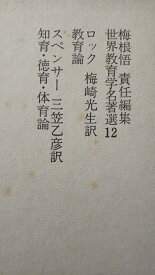 梅根悟 責任編集
世界教育学名著選12
ロック 梅崎光生訳
教育論
スペンサー 三笠乙彦訳
知育・徳育・体育論